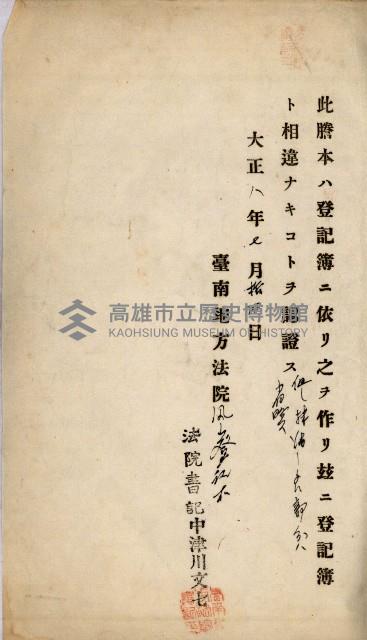 此謄本ハ登記簿ニ依リ之ヲ作リ玆ニ登記簿
ト相違ナキコトヲ認證ス
大正八年七月拾 日
臺南地方法院
法院書記中津川文七
高雄市立歷史博物館
KAOHSIUNG MUSEUM OF HISTORY